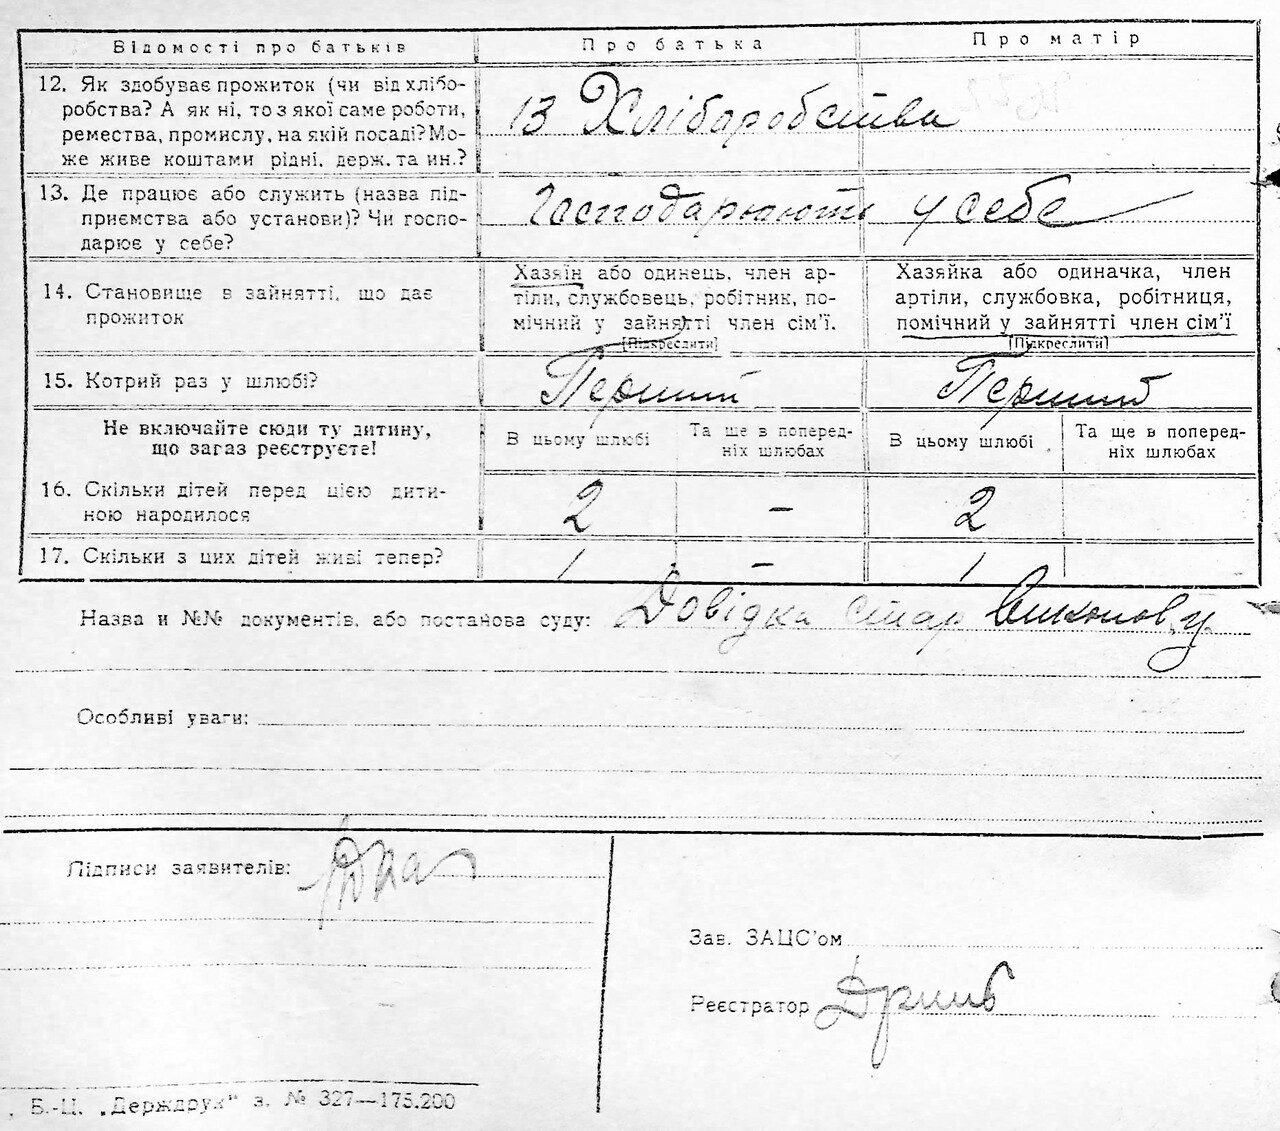 Відомості про батьків Про батька Про матір
12. Як здобуває прожиток (чи від хлібо-
робства? А як ні, то з якої саме роботи,
ремества, промислу, на якій посаді? Мо-
же живе коштами рідні, держ. та ин.?
із Хліборобства
13. Де працює або служить (назва під-
приємства або установи)? Чи госпо-
дарює у себе?
Господарюють у себе
14. Становище в зайнятті, що дає
прожиток
Хазяїн або одинець, член ар-
тіли, службовець, робітник, по-
мічний у зайнятті член сім'ї.
[Підкреслити]
Хазяйка або одиначка, член
артіли, службовка, робітниця,
помічний у зайнятті член сім'ї
[Підкреслити]
15. Котрий раз у шлюбі? Перший Перший
Не включайте сюди ту дитину,
що загаз реєструєте!
В цьому шлюбі Та ще в поперед-
ніх шлюбах
В цьому шлюбі Та ще в поперед-
ніх шлюбах
16. Скільки дітей перед цією дити-
ною народилося
2 - 2
17. Скільки з цих дітей живі тепер? 1 - 1
Назва и №№ документів, або постанова суду: Довідка стар
Особливі уваги:
Підписи заявителів:
Зав. ЗАЦС'ом
Реєстратор
Б.-Ц. „Держдрук" з. № 327—175.200